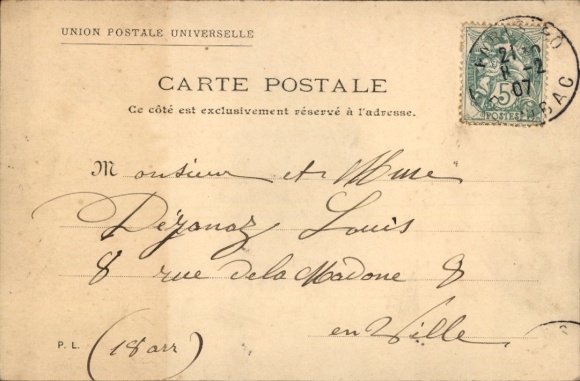 UNION POSTALE UNIVERSELLE
CARTE POSTALE
Ce côté est exclusivement réservé à l'adresse.
5
POSTES
21
12
07
BAC
Monsieur et Mme
Déjanaz Louis
8 rue de la Madone 8
en Ville
P. L.
(18 arr)